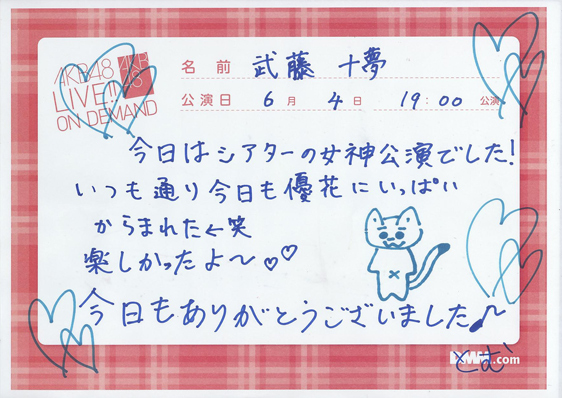 AKB48
LIVE!!
ON DEMAND
AKB
48
名前 武藤 十夢
公演日 6月 4日 19:00 公演
今日はシアターの女神公演でした!
いつも通り今日も優花にいっぱい
からまれた←笑
楽しかったよ〜♡♡
今日もありがとうございました♪
とむ
.com